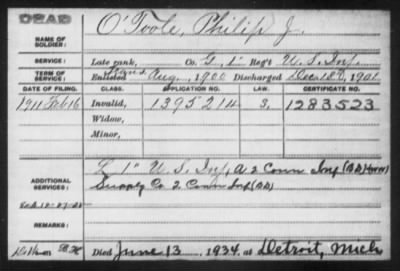 DEAD
NAME OF SOLDIER: O'Toole, Philip J.
SERVICE: Late rank, Co. G, 1" Reg't U. S. Inf.
TERM OF SERVICE: Enlisted Aug , 1900 Discharged , 1901
DATE OF FILING. CLASS. APPLICATION NO. LAW. CERTIFICATE NO.
1911 Feb 16 Invalid, 1395214 S. 1283523
Widow,
Minor,
ADDITIONAL SERVICES: L 1" U. S. Inf, A. 2 Conn Inf
Supply Co 2 Conn Inf
REMARKS:
Died June 13, 1934, at Detroit, Mich